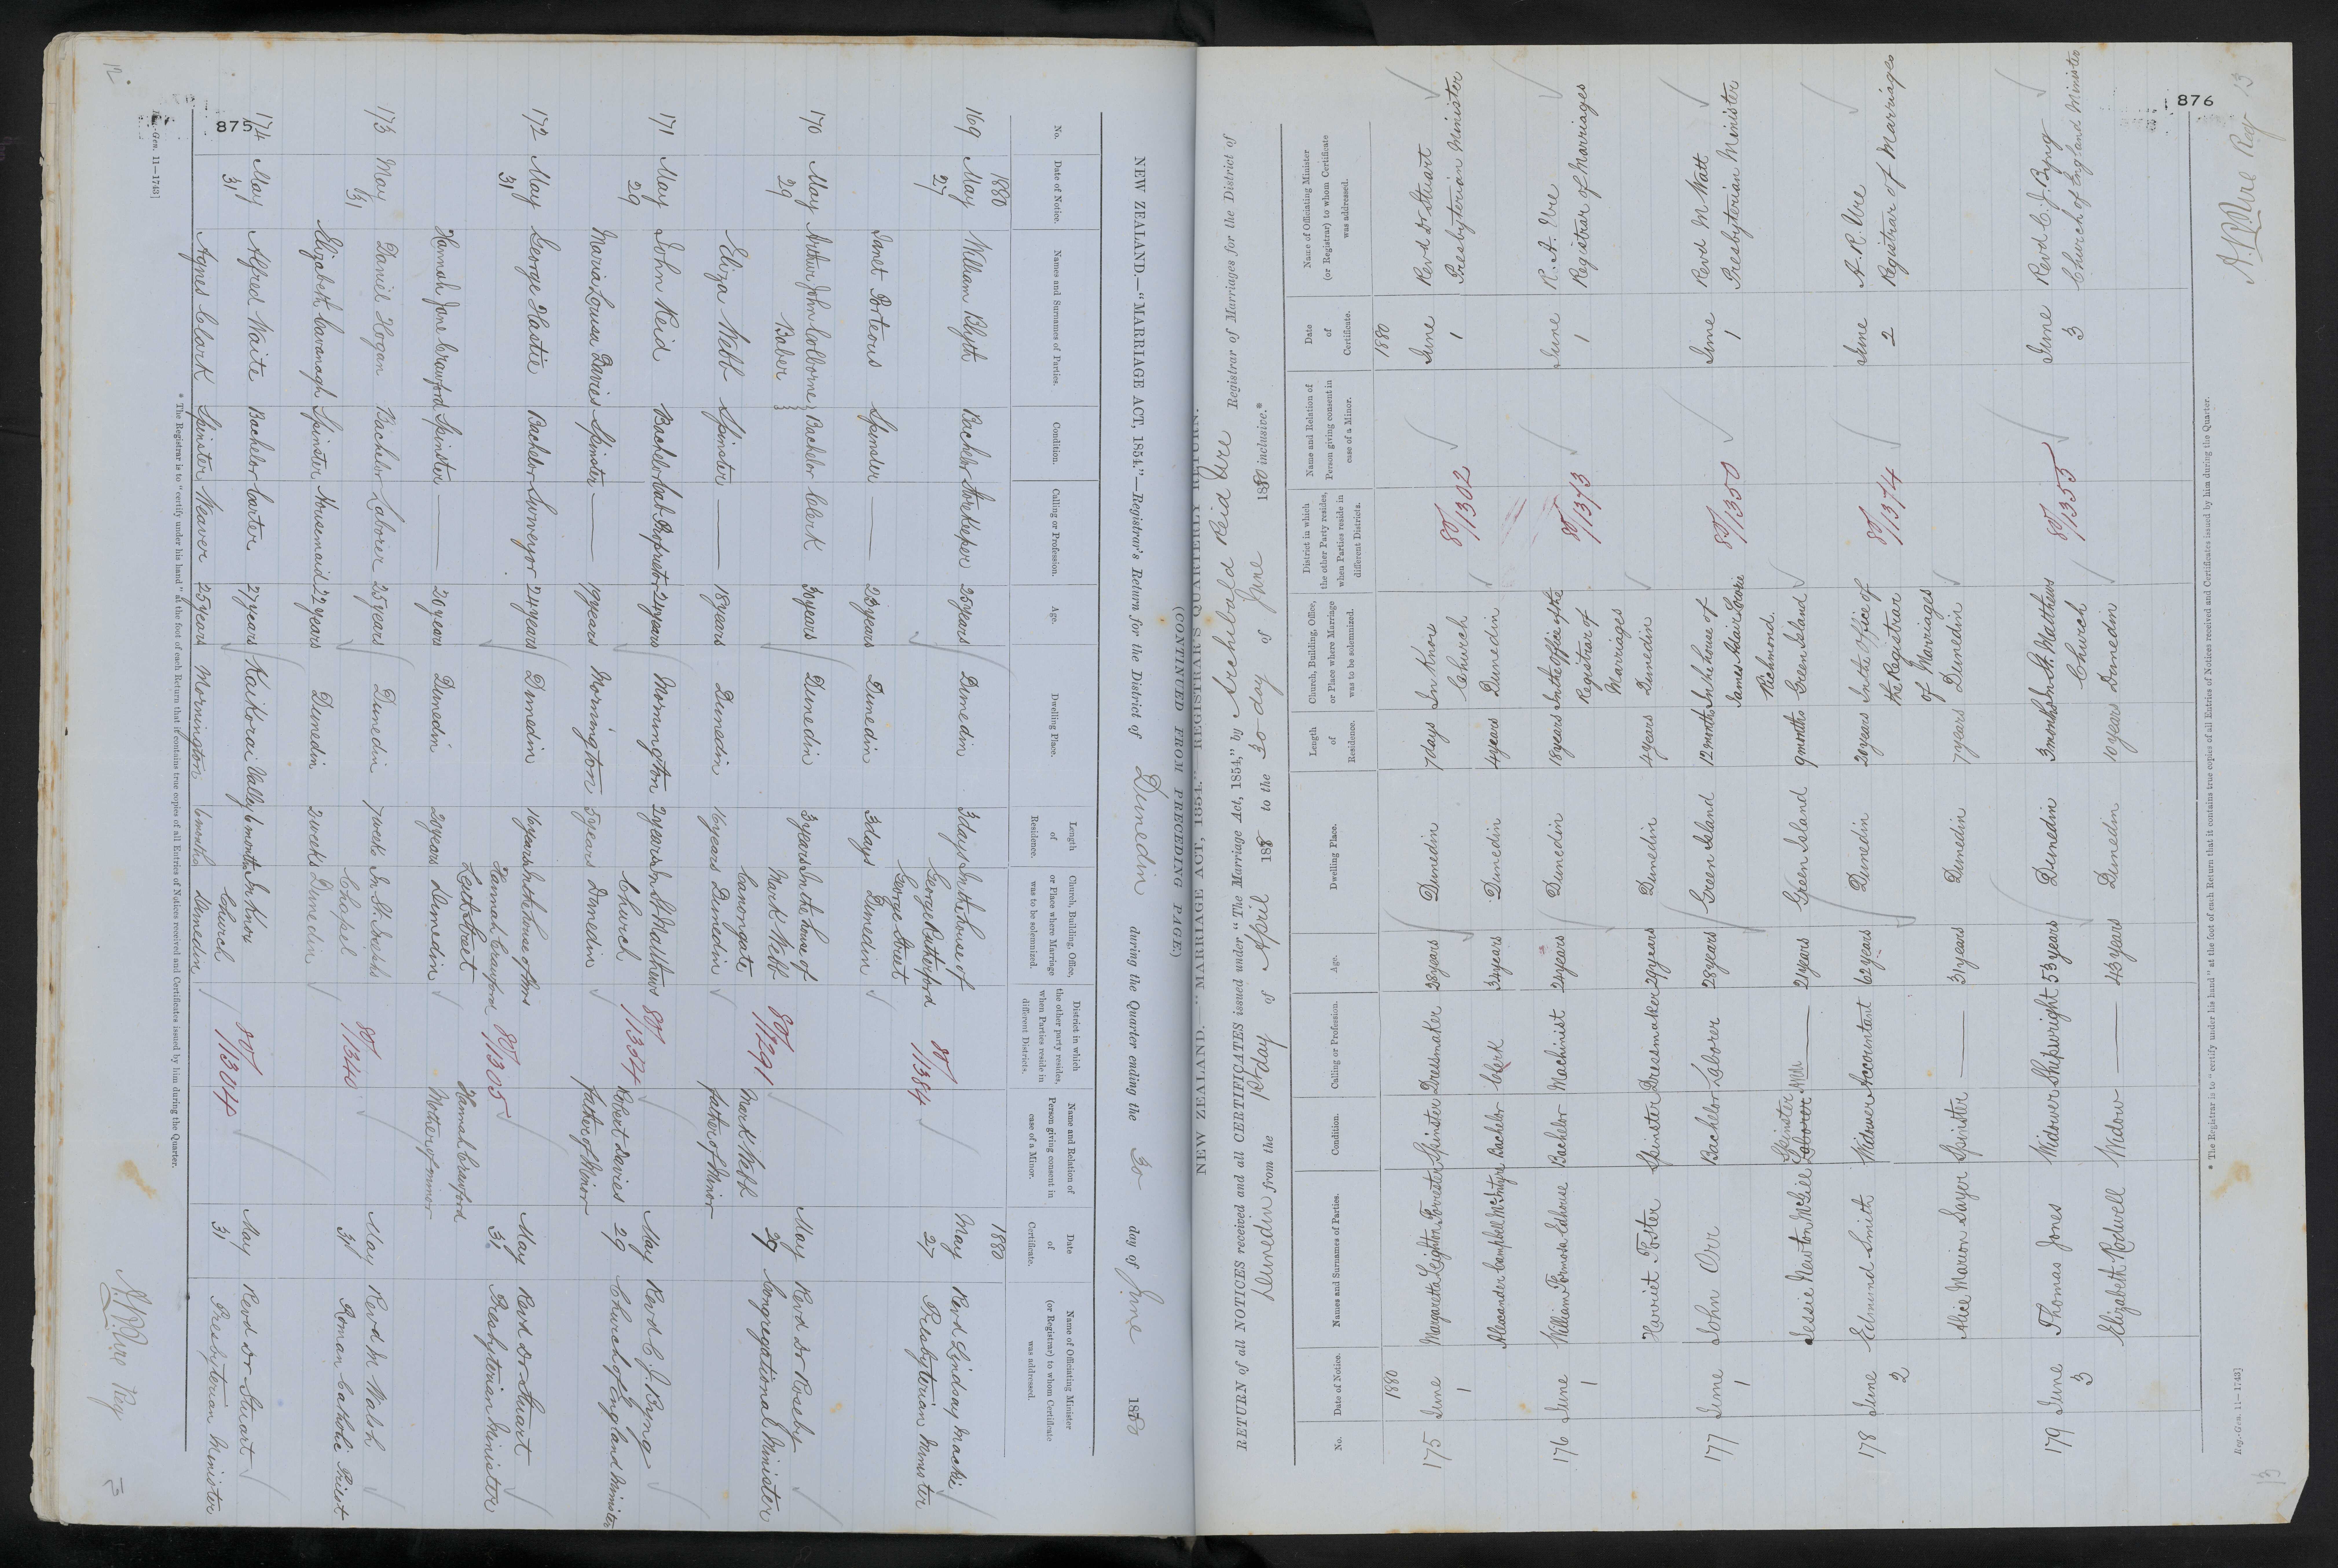 12
875
NEW ZEALAND.—"MARRIAGE ACT, 1854."—REGISTRAR'S QUARTERLY RETURN.
(CONTINUED FROM PRECEDING PAGE)
NEW ZEALAND.—"MARRIAGE ACT, 1854."—Registrar's Return for the District of Dunedin during the Quarter ending the 30 day of June 1880
No. Date of Notice. Names and Surnames of Parties. Condition. Calling or Profession. Age. Dwelling Place. Length of Residence. Church, Building, Office, or Place where Marriage was to be solemnized. District in which the other party resides, when Parties reside in different Districts. Name and Relation of Person giving consent in case of a Minor. Date of Certificate. Name of Officiating Minister (or Registrar) to whom Certificate was addressed.
1880 1880
169 May 27 William Blyth Bachelor Storekeeper 25 years Dunedin 3 days In the house of George Rutherford George Street 80/1384 May 27 Revd Lindsay Mackie Presbyterian Minister
Janet Porteous Spinster — 23 years Dunedin 3 days Dunedin
170 May 29 Arthur John Colborne Baber Bachelor Clerk 30 years Dunedin 3 years In the house of Mark Webb Canongate 80/1291 Mark Webb father of Minor May 29 Revd Dr Roseby Congregational Minister
Eliza Webb Spinster — 18 years Dunedin 16 years Dunedin
171 May 29 John Reid Bachelor Cab Proprietor 24 years Mornington 2 years In St Matthews Church 80/1354 Robert Davies father of Minor May 29 Revd C. J. Byng Church of England Minister
Maria Louisa Davies Spinster — 19 years Mornington 5 years Dunedin
172 May 31 George Hastie Bachelor Surveyor 24 years Dunedin 16 years In the house of Mrs Hannah Crawford Leith Street 80/1305 Hannah Crawford Mother of minor May 31 Revd Dr Stuart Presbyterian Minister
Hannah Jane Crawford Spinster — 20 years Dunedin 20 years Dunedin
173 May 31 Daniel Hogan Bachelor Laborer 25 years Dunedin 7 weeks In St. Josephs Chapel 80/1340 May 31 Revd M Walsh Roman Catholic Priest
Elizabeth Cavanagh Spinster Housemaid 22 years Dunedin 2 weeks Dunedin
174 May 31 Alfred Waite Bachelor Carter 27 years Kaikorai Valley 6 months In Knox Church 80/1304 May 31 Revd Dr Stuart Presbyterian Minister
Agnes Clark Spinster Weaver 25 years Mornington 6 months Dunedin
* The Registrar is to "certify under his hand" at the foot of each Return that it contains true copies of all Entries of Notices received and Certificates issued by him during the Quarter.
Reg.-Gen. 11—1743]
A. R. Ure Reg
876
13
RETURN of all NOTICES received and all CERTIFICATES issued under "The Marriage Act, 1854," by Archibald Reid Ure Registrar of Marriages for the District of
Dunedin from the 1st day of April 188 to the 30 day of June 1880 inclusive.*
No. Date of Notice. Names and Surnames of Parties. Condition. Calling or Profession. Age. Dwelling Place. Length of Residence. Church, Building, Office, or Place where Marriage was to be solemnized. District in which the other Party resides, when Parties reside in different Districts. Name and Relation of Person giving consent in case of a Minor. Date of Certificate. Name of Officiating Minister (or Registrar) to whom Certificate was addressed.
1880 1880
175 June 1 Margaretta Leighton Forrester Spinster Dressmaker 28 years Dunedin 7 days In Knox Church 80/1302 June 1 Revd Dr Stuart Presbyterian Minister
Alexander Campbell McIntyre Bachelor Clerk 34 years Dunedin 4 years Dunedin
176 June 1 William Formosa Edhouse Bachelor Machinist 24 years Dunedin 18 years In the Office of the Registrar of Marriages 80/1373 June 1 R. A. Ure Registrar of Marriages
Harriet Foster Spinster Dressmaker 29 years Dunedin 4 years Dunedin
177 June 1 John Orr Bachelor Laborer 28 years Green Island 12 months In the house of James Adair Richmond. 80/1350 June 1 Revd M Watt Presbyterian Minister
Jessie Newton McGill Spinster Laborer — 21 years Green Island 9 months Green Island
178 June 2 Edmund Smith Widower Accountant 62 years Dunedin 20 years In the Office of the Registrar of Marriages 80/1374 June 2 A. R. Ure Registrar of Marriages
Alice Marion Sayer Spinster — 31 years Dunedin 7 years Dunedin
179 June 3 Thomas Jones Widower Shipwright 53 years Dunedin 3 months In St. Matthews Church 80/1355 June 3 Revd C. J. Byng Church of England Minister
Elizabeth Rodwell Widow — 43 years Dunedin 10 years Dunedin
* The Registrar is to "certify under his hand" at the foot of each Return that it contains true copies of all Entries of Notices received and Certificates issued by him during the Quarter.
Reg.-Gen. 11—1743]
A. R. Ure Reg
13